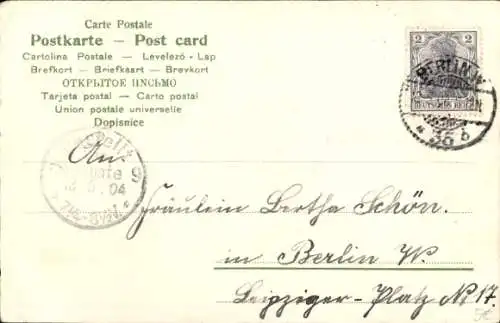 Carte Postale
Postkarte — Post card
Cartolina Postale — Levelező-Lap
Brefkort — Briefkaart — Brevkort
ОТКРЫТОЕ ПИСЬМО
Tarjeta postal — Carto postal
Union postale universelle
Dopisnice
2 2
BERLIN W
DEUTSCHES REICH
35 b
An
Bestellt
9
04
7½-8½V.
Fräulein Bertha Schön.
in Berlin W.
Leipziger-Platz No 17.